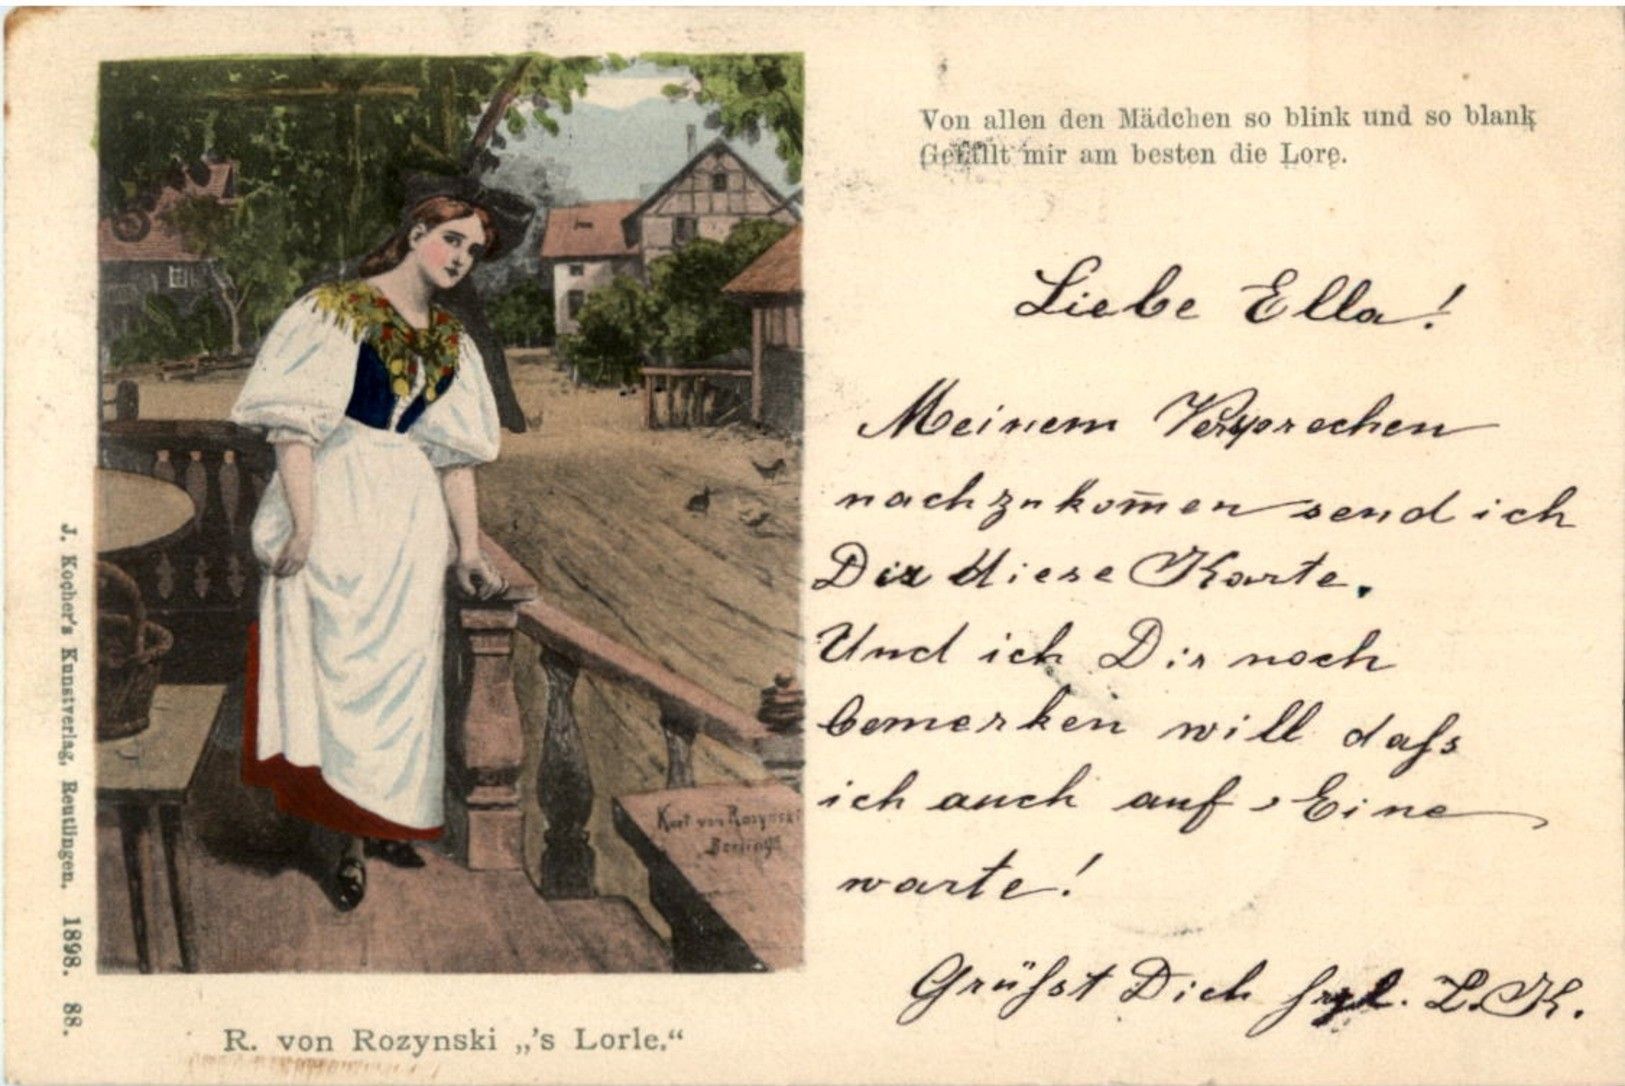 Von allen den Mädchen so blink und so blank
Gefällt mir am besten die Lore.
Liebe Ella!
Meinem Versprechen
nachzukom̅en send ich
Dir diese Karte.
Und ich Dir noch
bemerken will daſs
ich auch auf Eine
warte!
Grüſst Dich L. K.
Kurt von Rozynski
R. von Rozynski „'s Lorle.“
J. Kocher's Kunstverlag, Reutlingen. 1898. 88.